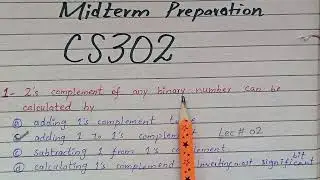 Midterm Preparation
CS302
1- 2's complement of any binary number can be
calculated by
ⓐ adding 1's complement
adding 1 to 1's complement Lec # 02
ⓒ subtracting 1 from 1's complement
ⓓ calculating 1's complement inverting most significant bit